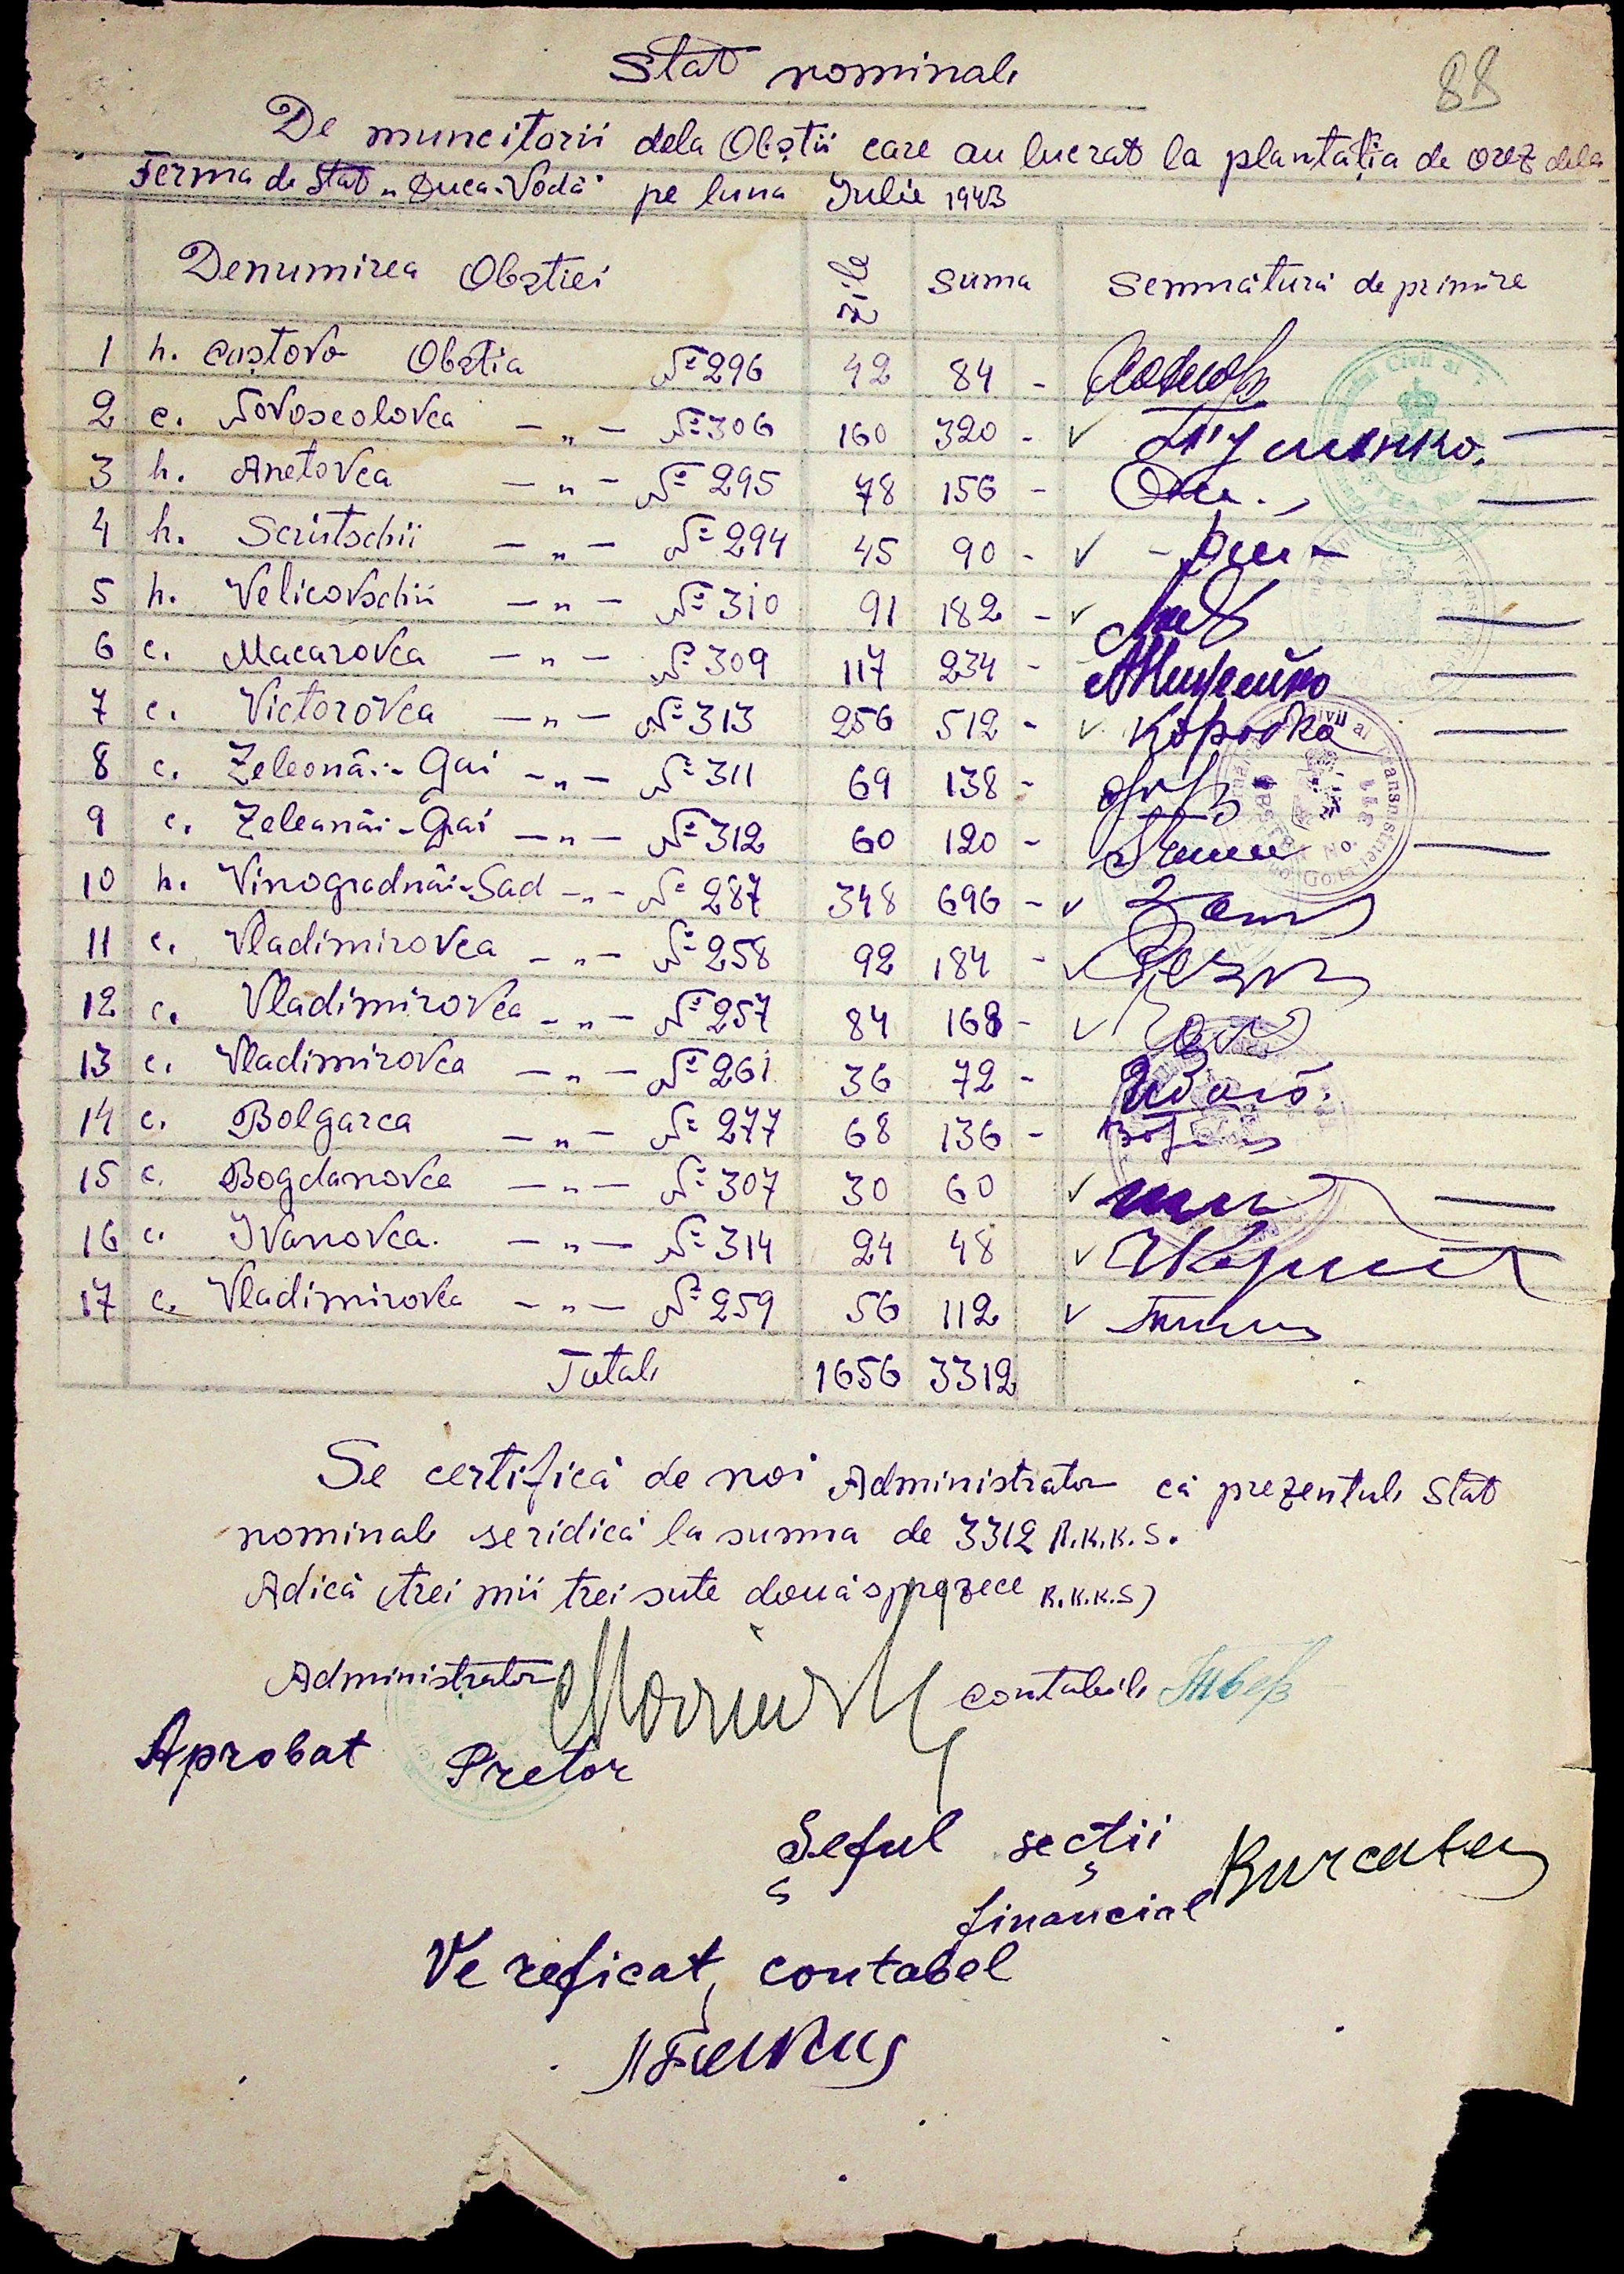 88
Stat nominal
De muncitorii dela Obștii care au lucrat la plantația de orez dela
Ferma de Stat „Duca-Vodă" pe luna Iulie 1943
Denumirea Obștiei zile Suma Semnătură de primire
1 h. Caștova Obștia № 296 42 84 -
2 c. Novoseolovca — „ — № 306 160 320 - ✓
3 h. Anetovca — „ — № 295 78 156 -
4 h. Scrîtschii — „ — № 294 45 90 - ✓
5 h. Velicovschii — „ — № 310 91 182 - ✓
6 c. Macarovca — „ — № 309 117 234 -
7 c. Victorovca — „ — № 313 256 512 - ✓
8 c. Zeleonâi-Gai — „ — № 311 69 138 -
9 c. Zeleanâi-Gai — „ — № 312 60 120 -
10 h. Vinogradnâi-Sad — „ — № 287 348 696 - ✓
11 c. Vladimirovca — „ — № 258 92 184 - ✓
12 c. Vladimirovca — „ — № 257 84 168 - ✓
13 c. Vladimirovca — „ — № 261 36 72 -
14 c. Bolgarca — „ — № 277 68 136 -
15 c. Bogdanovca — „ — № 307 30 60 ✓
16 c. Ivanovca. — „ — № 314 24 48 ✓
17 c. Vladimirovca — „ — № 259 56 112 ✓
Total 1656 3312
Se certifică de noi Administrator că prezentul Stat
nominal se ridică la suma de 3312 R.K.K.S.
Adică (trei mii trei sute douăsprezece R.K.K.S)
Administrator contabil
Aprobat Pretor
Șeful secții
financial
Vereficat, contabel